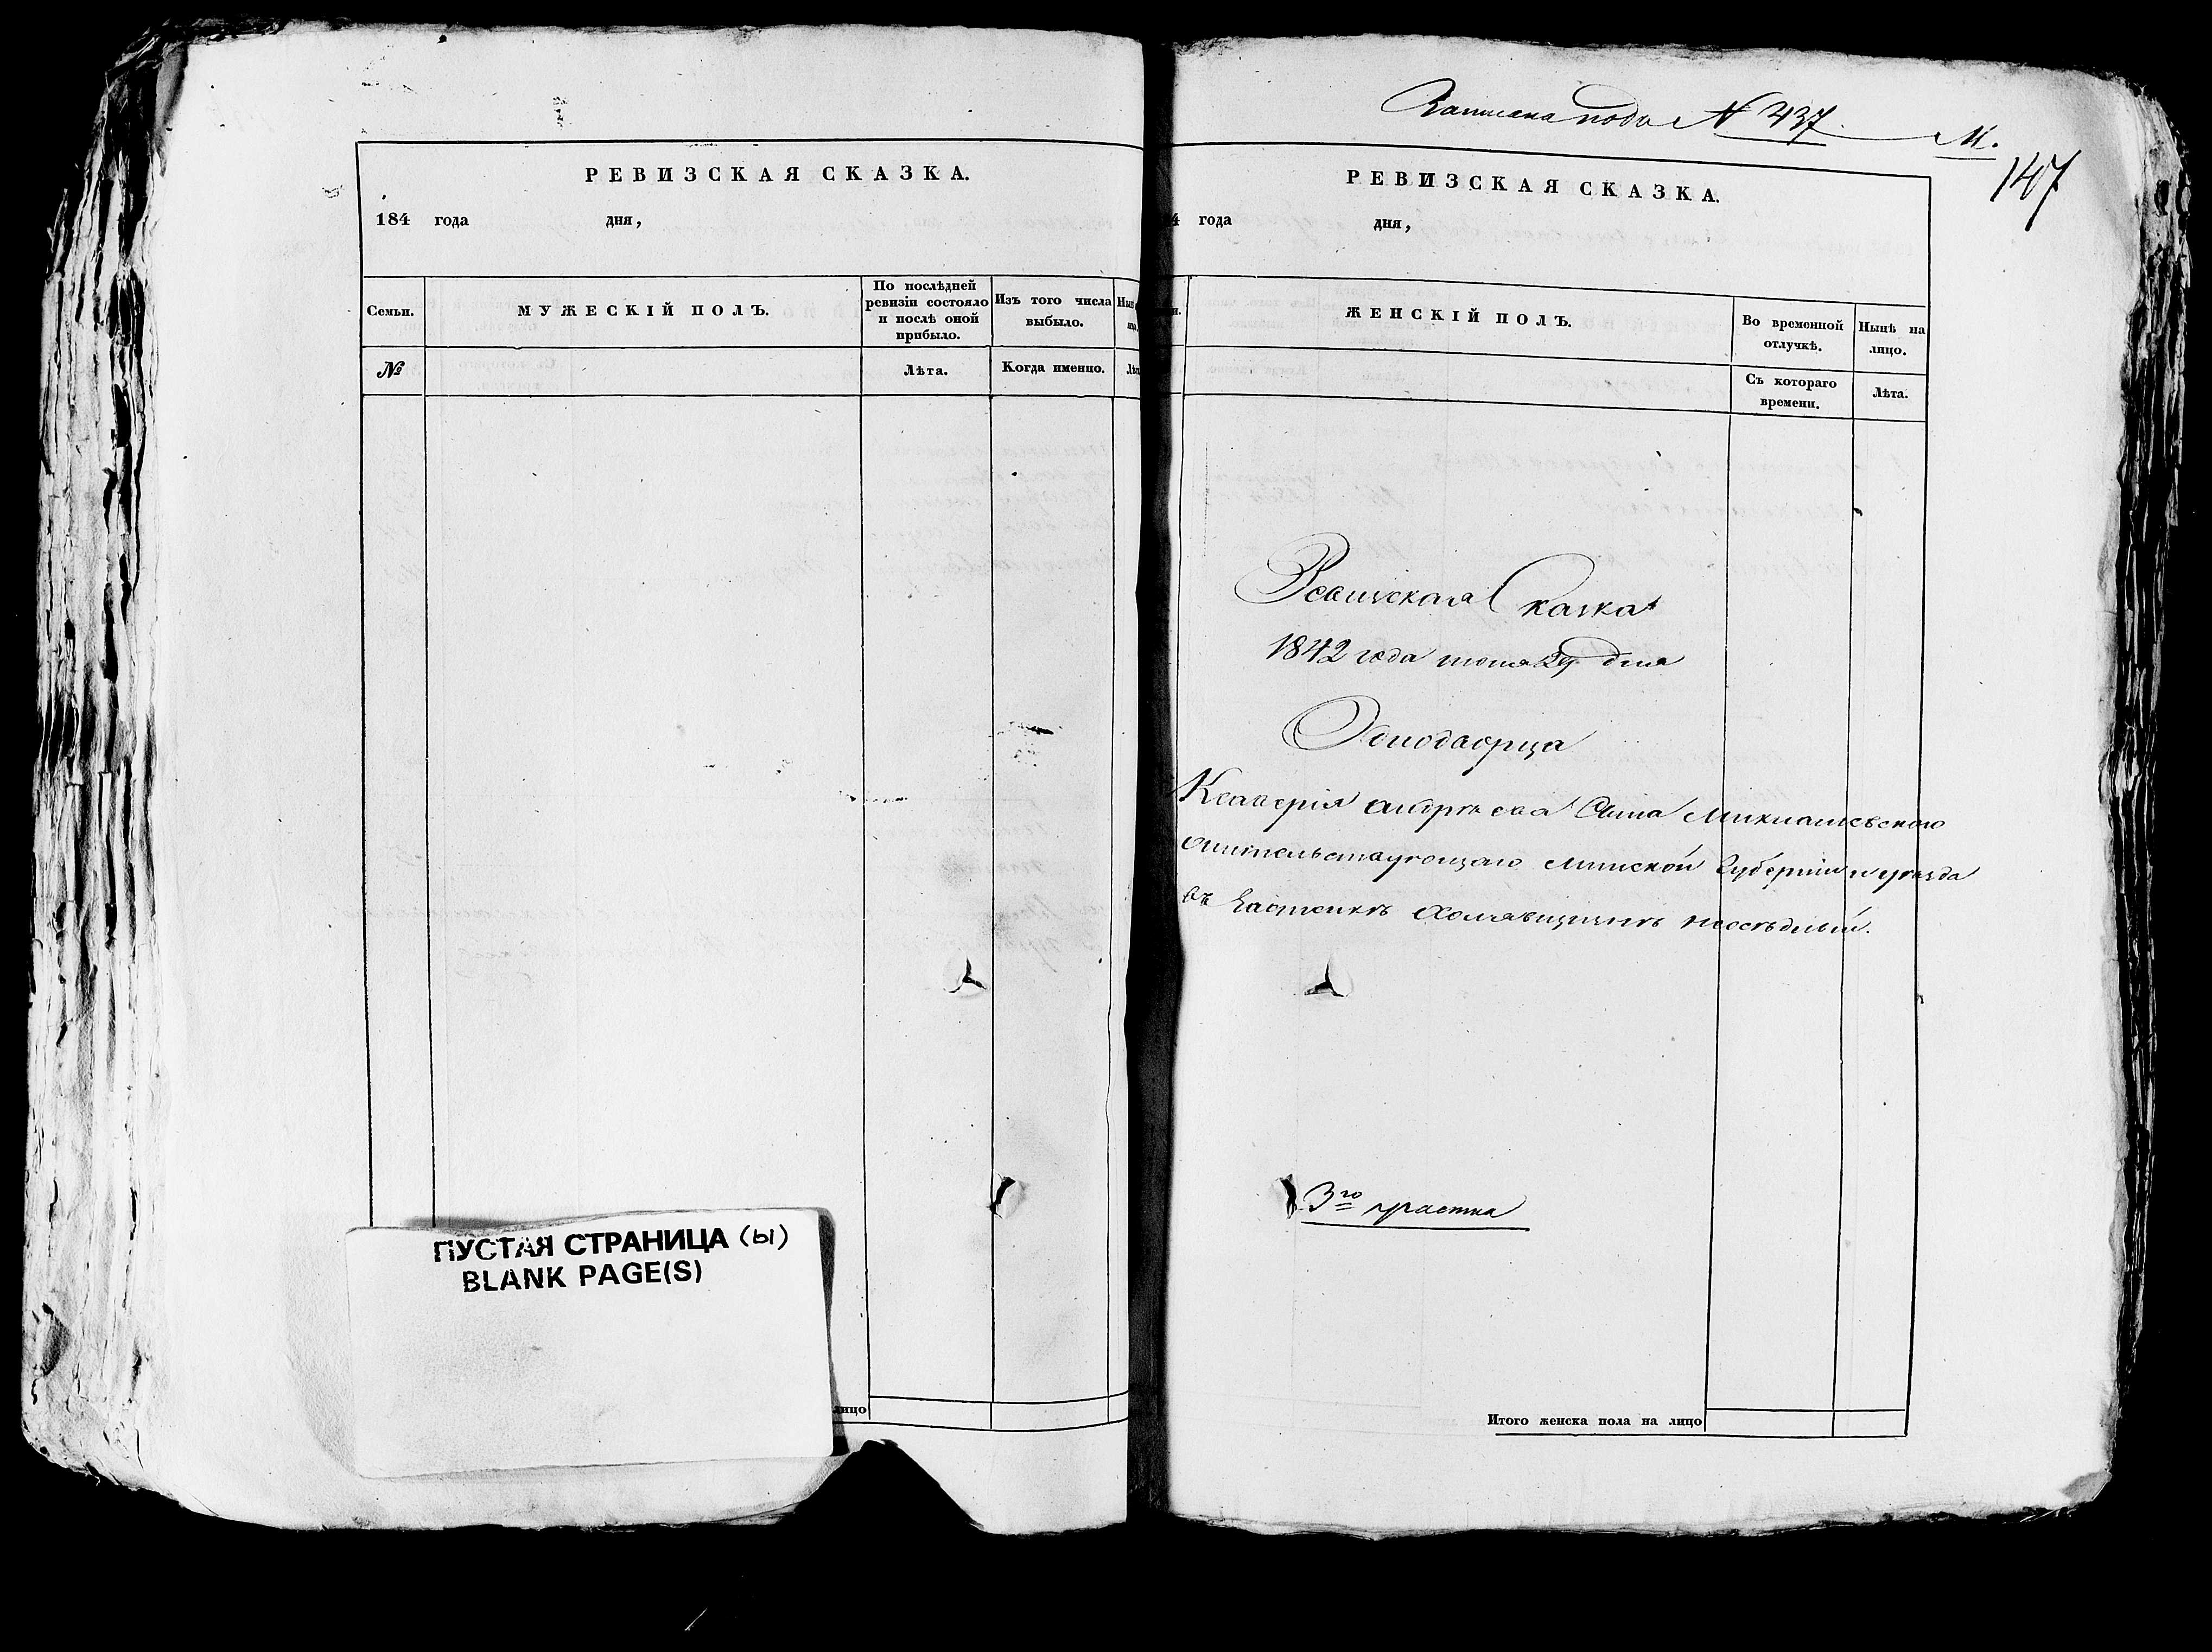 РЕВИЗСКАЯ СКАЗКА.
184 года дня,
Семьи.
МУЖЕСКІЙ ПОЛЪ.
По послѣдней
ревизіи состояло
и послѣ оной
прибыло.
Изъ того числа
выбыло.
№
Лѣта.
Когда именно.
лицо
ПУСТАЯ СТРАНИЦА (ы)
BLANK PAGE(S)
Записана подъ N 437
М.
147
РЕВИЗСКАЯ СКАЗКА.
4 года дня,
ЖЕНСКІЙ ПОЛЪ.
Во временной
отлучкѣ.
Нынѣ на
лицо.
Съ котораго
времени.
Лѣта.
Ревизская Сказка
1842 года июня 29 дня
Однодворца
Ксаверія Андрѣева Сына
жительствующаго Минской Губерніи и уѣзда
въ Застенкѣ осѣдлый.
3го участка
Итого женска пола на лицо